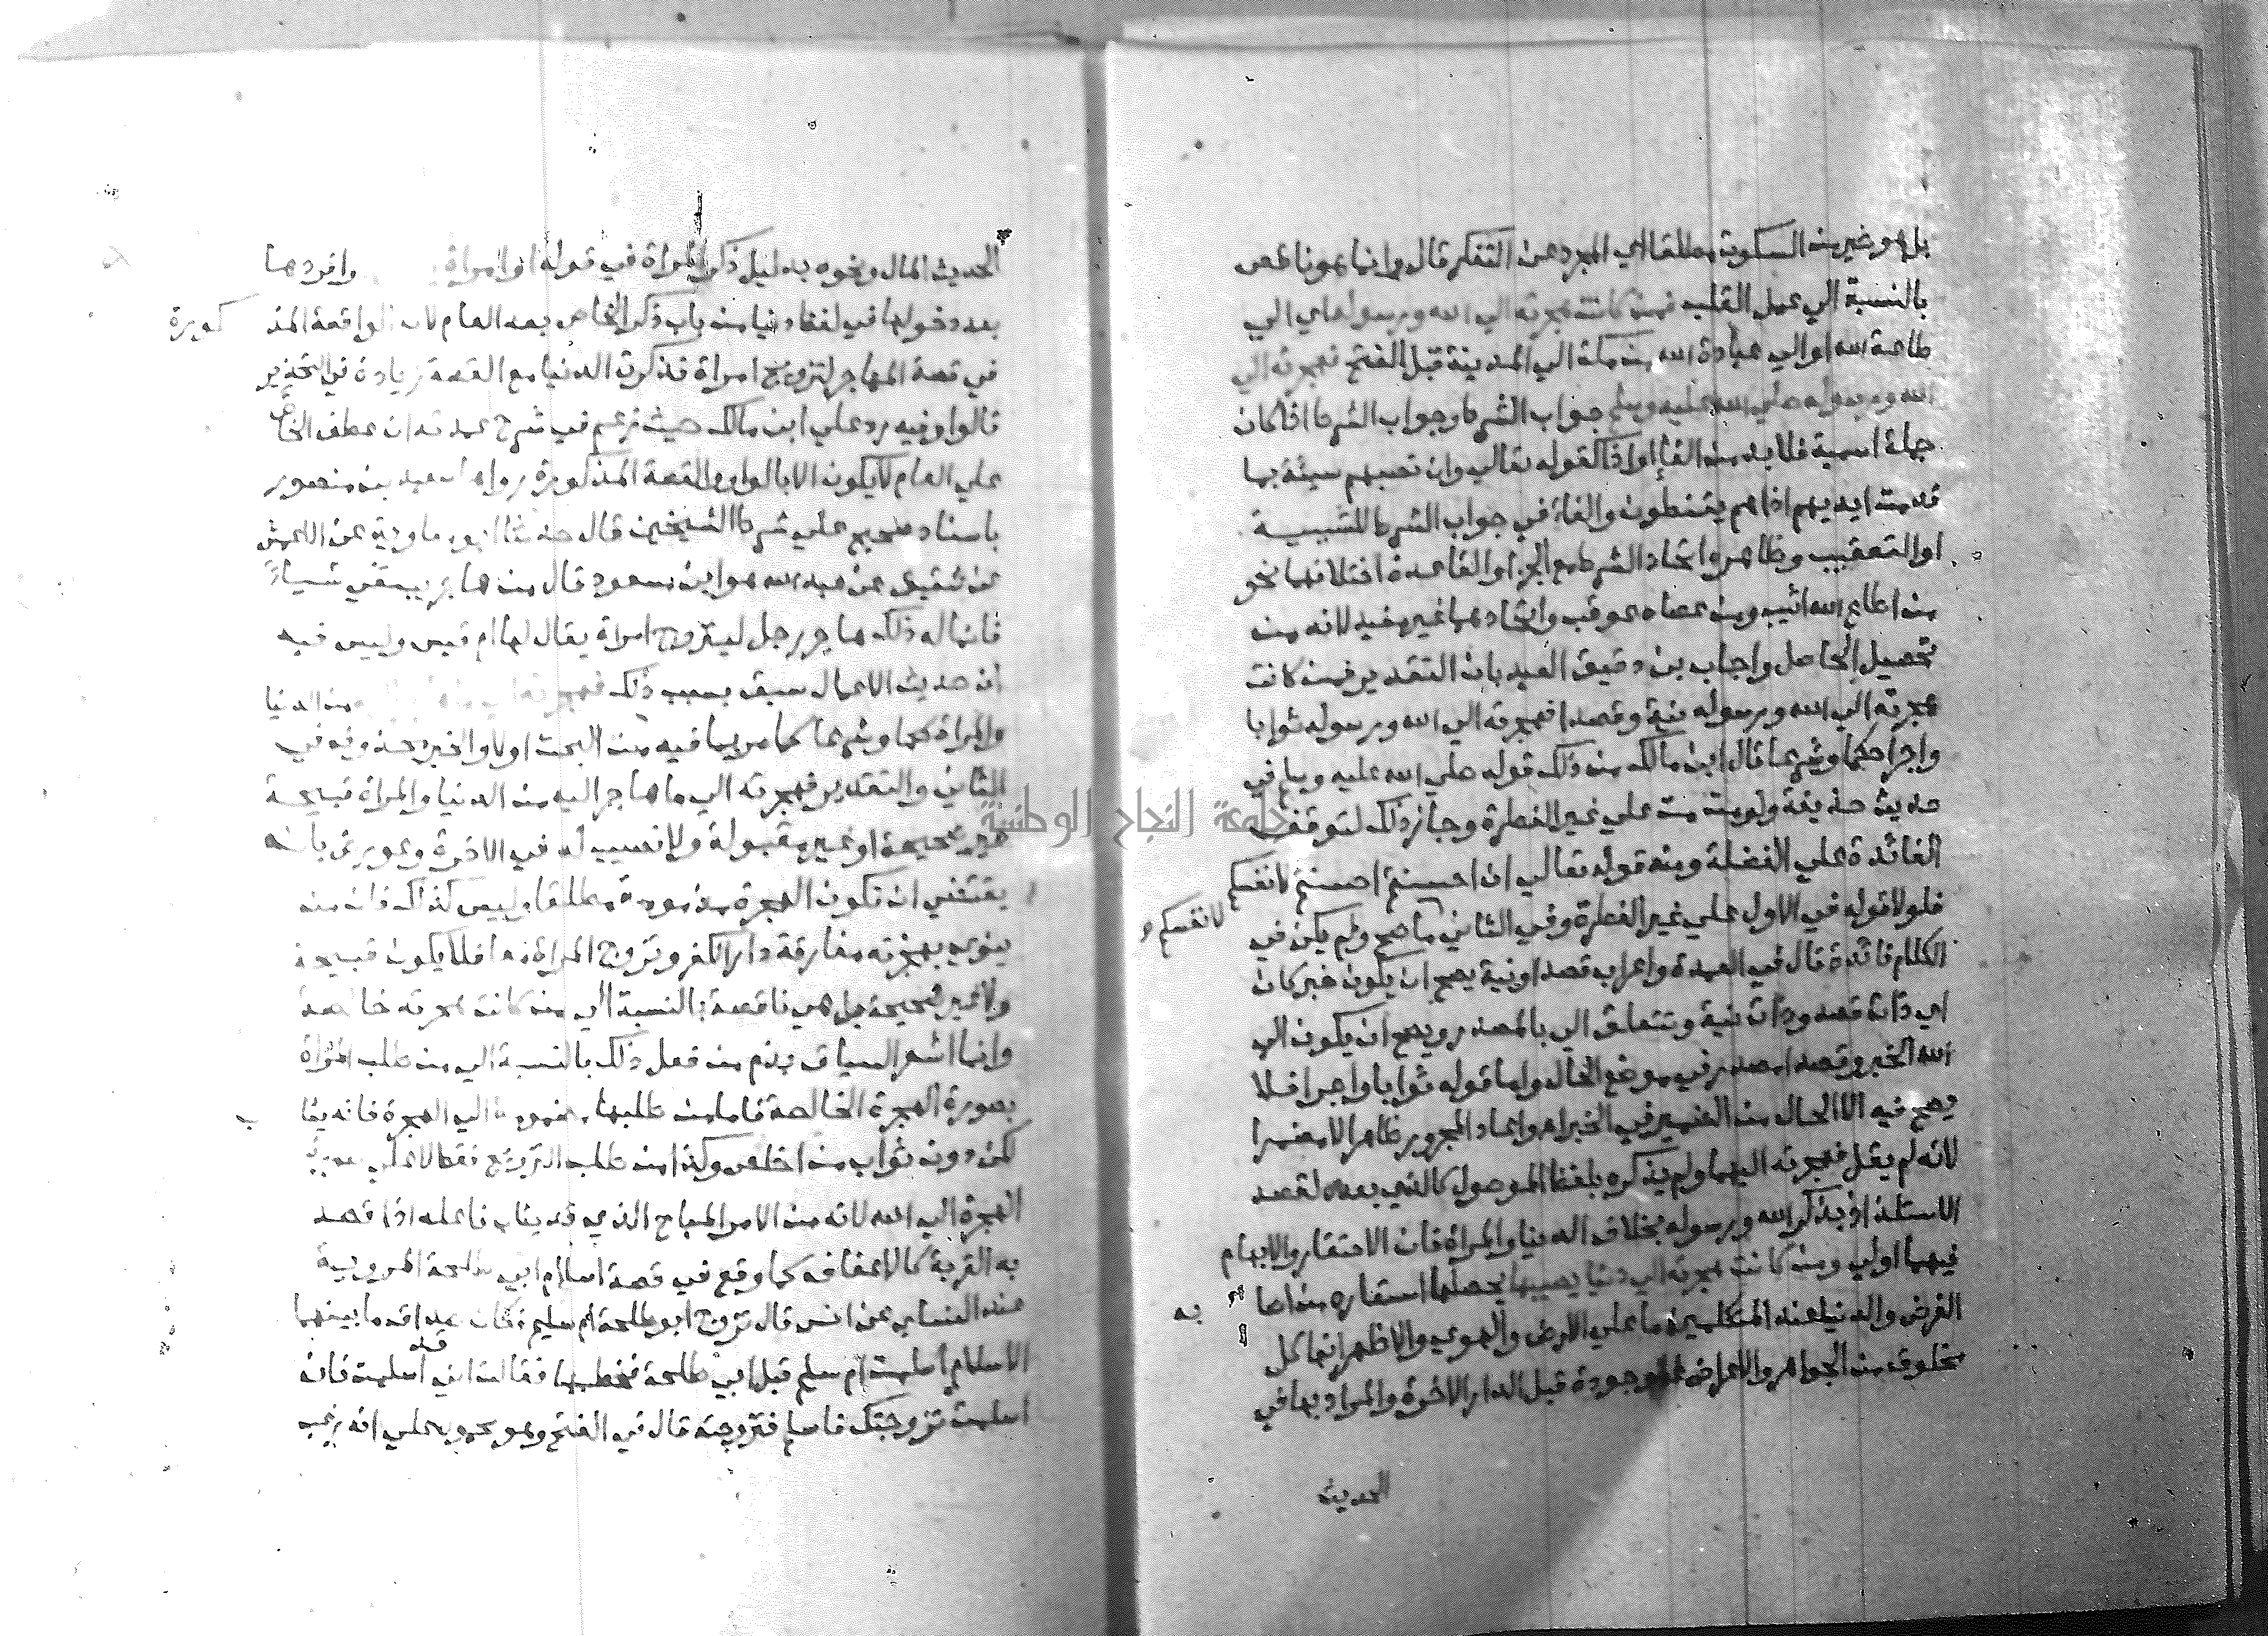 بل هو خير من السكوت مطلقا اي المجرد عن التفكر قال وانما هو ناقص
بالنسبة الي عمل القلب فمن كانت هجرته الي الله ورسوله اي الي
طاعة الله او الي عبادة الله من مكة الي المدينة قبل الفتح فهجرته الي
الله ورسوله صلي الله عليه وسلم جواب الشرط وجواب الشرط اذا كان
جملة اسمية فلا بد من الفا او اذا كقوله تعالي وان تصبهم سيئة بما
قدمت ايديهم اذا هم يقنطون والفا في جواب الشرط للسببية
او التعقيب وظاهره اتحاد الشرط مع الجزا والقاعدة اختلافهما نحو
من اطاع الله اثيب ومن عصاه عوقب واتحادهما غير مفيد لانه من
تحصيل الحاصل واجاب بن دقيق العيد بان التقدير فمن كانت
هجرته الي الله ورسوله نية وقصدا فهجرته الي الله ورسوله ثوابا
واجرا حكما وشرعا قال ابن مالك من ذلك قوله صلي الله عليه وسلم في
حديث حذيفة ولو مت مت علي غير الفطرة وجاز ذلك لتوقف
الفائدة علي الفضلة ومنه قوله تعالي ان احسنتم احسنتم لانفسكم
لانفسكم
فلولا قوله في الاول علي غير الفطرة وفي الثاني ما صح ولم يكن في
الكلام فائدة قال في العمدة واعراب قصدا ونية يصح ان يكون خبر كان
اي ذات قصد وذات نية وتتعلق الي بالمصدر ويصح ان يكون الي
الله الخبر وقصدا مصدر في موضع الحال واما قوله ثوابا واجرا فلا
يصح فيه الا الحال من الضمير في الخبر اه واعاد المجرور ظاهرا لا مضمرا
لانه لم يقل فهجرته اليهما ولم يذكره بلفظ الموصول كالذي بعده لقصد
الاستلذاذ بذكر الله ورسوله بخلاف الدنيا والمراة فان الاحتقار والابهام
فيهما اولي ومن كانت هجرته الي دنيا يصيبها يحصلها استعارة من اصابة
الغرض والدنيا عند المتكلمين ما علي الارض والهوي والاظهر انها كل
مخلوق من الجواهر والاعراض الموجودة قبل الدار الاخرة والمراد بها في
الحديث
الحديث المال ونحوه بدليل ذكر المراة في قوله او امراة وافردها
بعد دخولها في لفظ دنيا من باب ذكر الخاص بعد العام لان الواقعة المذ كورة
في قصة المهاجر لتزويج امراة فذكرت الدنيا مع القصة زيادة في التحذير
قالوا وفيه رد علي ابن مالك حيث زعم في شرح عمدته ان عطف الخاص
علي العام لا يكون الا بالواو والقصة المذكورة رواها سعيد بن منصور
باسناد صحيح علي شرط الشيخين قال حدثنا ابو معاوية عن الاعمش
عن شقيق عن عبد الله هو ابن مسعود قال من هاجر يبتغي شيئا
فانما له ذلك هاجر رجل ليتزوج امراة يقال لها ام قيس وليس فيه
ان حديث الاعمال سيق بسبب ذلك فهجرته من الدنيا
والمراة حكما وشرعا كما مر بما فيه من البحث اولا والخبر محذوف في
الثاني والتقدير فهجرته الي ما هاجر اليه من الدنيا والمراة قبيحة
غير صحيحة او غير مقبولة ولا نصيب له في الاخرة وعورض بانه
يقتضي ان تكون الهجرة مذمومة مطلقا وليس كذلك فان من
ينوي بهجرته مفارقة دار الكفر وتزوج المراة معا فلا يكون قبيحة
ولا غير صحيحة بل هي ناقصة بالنسبة الي من كانت هجرته خالصة
وانما اشعر السياق بذم من فعل ذلك بالنسبة الي من طلب المراة
بصورة الهجرة الخالصة فاما من طلبها مضمومة الي الهجرة فانه يثا ب
لكن دون ثواب من اخلص وكذا من طلب التزويج فقط لا علي صورة
الهجرة الي الله لانه من الامر المباح الذي قد يثاب فاعله اذا قصد
به القربة كالاعفاف كما وقع في قصة اسلام ابي طلحة المروية
عند النسائي عن انس قال تزوج ابو طلحة ام سليم فكان صداق ما بينهما
الاسلام اسلمت ام سليم قبل ابي طلحة فخطبها فقالت اني قد اسلمت فان
اسلمت تزوجتك فاسلم فتزوجته قال في الفتح وهو محمول علي انه رغب
جامعة النجاح الوطنية